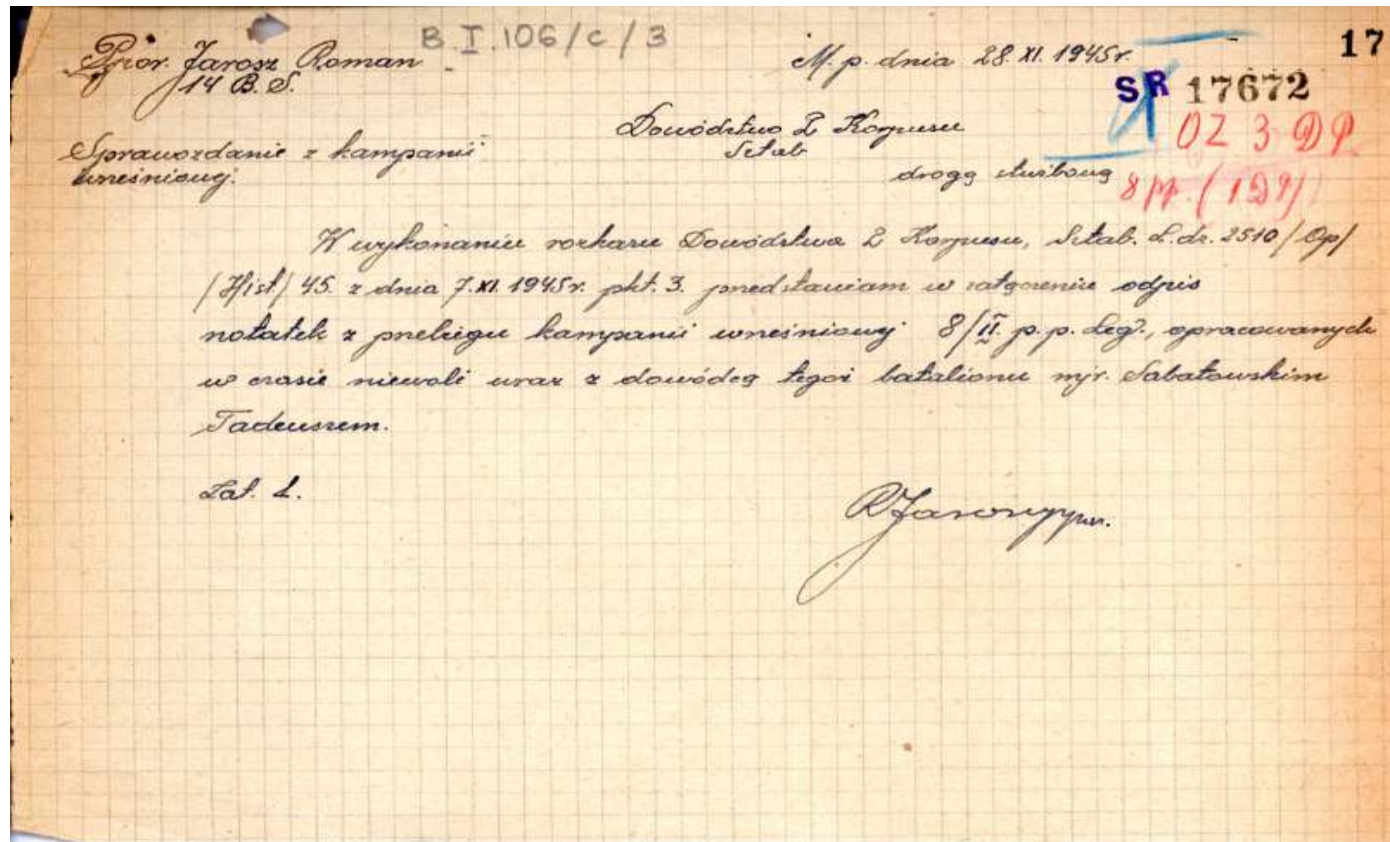 B I.106/c/3
17
Ppor. Jarosz Roman
14 B. S.
M. p. dnia 28. XI. 1945r.
SR 17672
OZ 3 DP
8 pp. (1DP)
Sprawozdanie z kampanii
wrześniowej.
Dowództwo 2 Korpusu
Sztab
drogą służbową
W wykonaniu rozkazu Dowództwa 2 Korpusu, Sztab. L.dz. 2510/Op/
/Hist/45. z dnia 7.XI.1945r. pkt. 3. przedstawiam w załączeniu odpis
notatek z przebiegu kampanii wrześniowej 8/II p.p. Leg., opracowanych
w czasie niewoli wraz z dowódcą tegoż batalionu mjr. Sabatowskim
Tadeuszem.
Zał. 2.
RJarosz ppor.